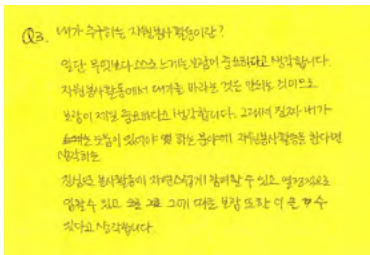 Q3. 내가 추구하는 자원봉사활동이란?
일단 무엇보다 스스로 느끼는 보람이 중요하다고 생각합니다.
자원봉사활동에서 대가를 바라는 것은 안되는 것이므로
보람이 제일 중요하다고 생각합니다. 그래서 진짜 내가
도움이 있어야 하는 분야에 자원봉사활동을 한다면
생각하는
진심으로 봉사활동에 자연스럽게 참여할 수 있고 열정적으로
임할 수 있고 그에 따른 보람 또한 더 클 수
있다고 생각합니다.